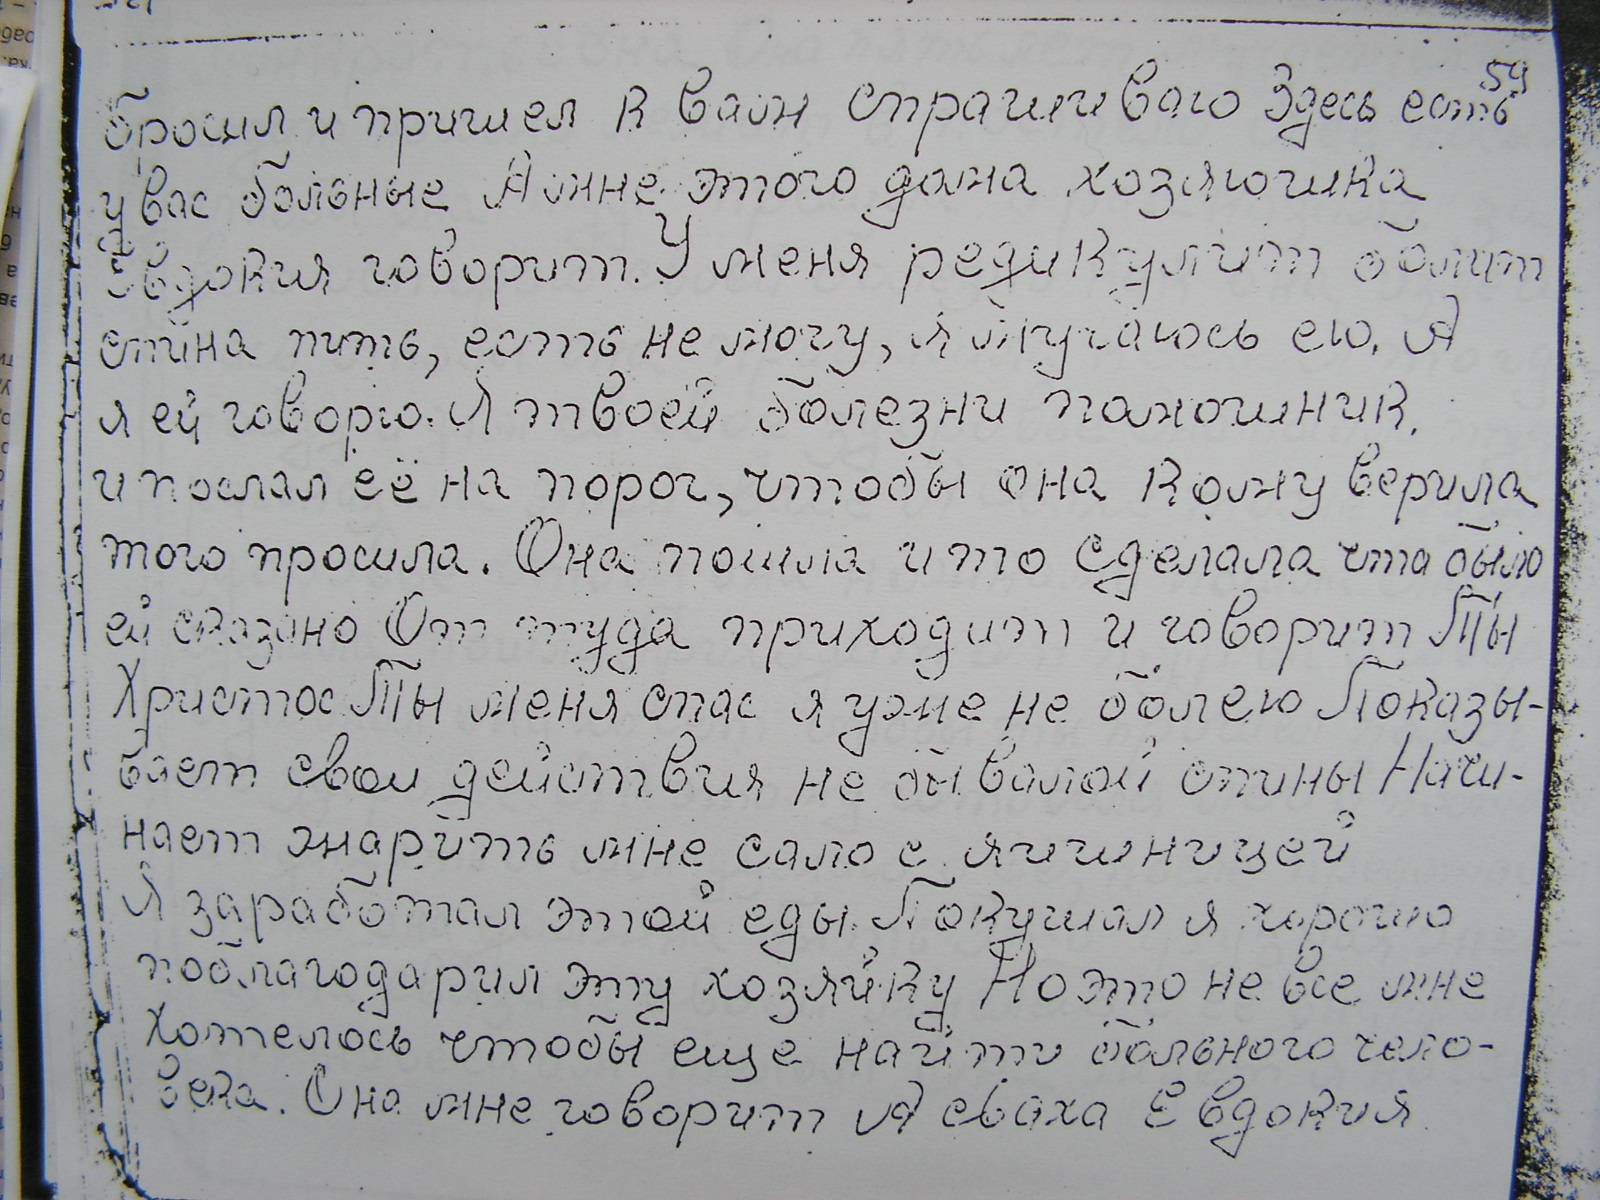 54
бросил и пришел к вам спрашиваю Здесь есть
у вас больные А мне этого дома хозяюшка
Евдокия говорит. У меня редикулит болит
спина пить, есть не могу, я мучаюсь ею. А
я ей говорю. Я твоей болезни помошник.
и послал её на порог, чтобы она кому верила
того просила. Она пошла и то сделала что было
ей сказано От туда приходит и говорит Ты
Христос Ты меня спас я уже не болею Показы-
вает свои действия не бывалой спины Начи-
нает жарить мне сало с яичницей
Я заработал этой еды Покушал я хорошо
поблагодарил эту хозяйку Но это не все мне
хотелось чтобы еще найти больного чело-
века. Она мне говорит А сваха Евдокия